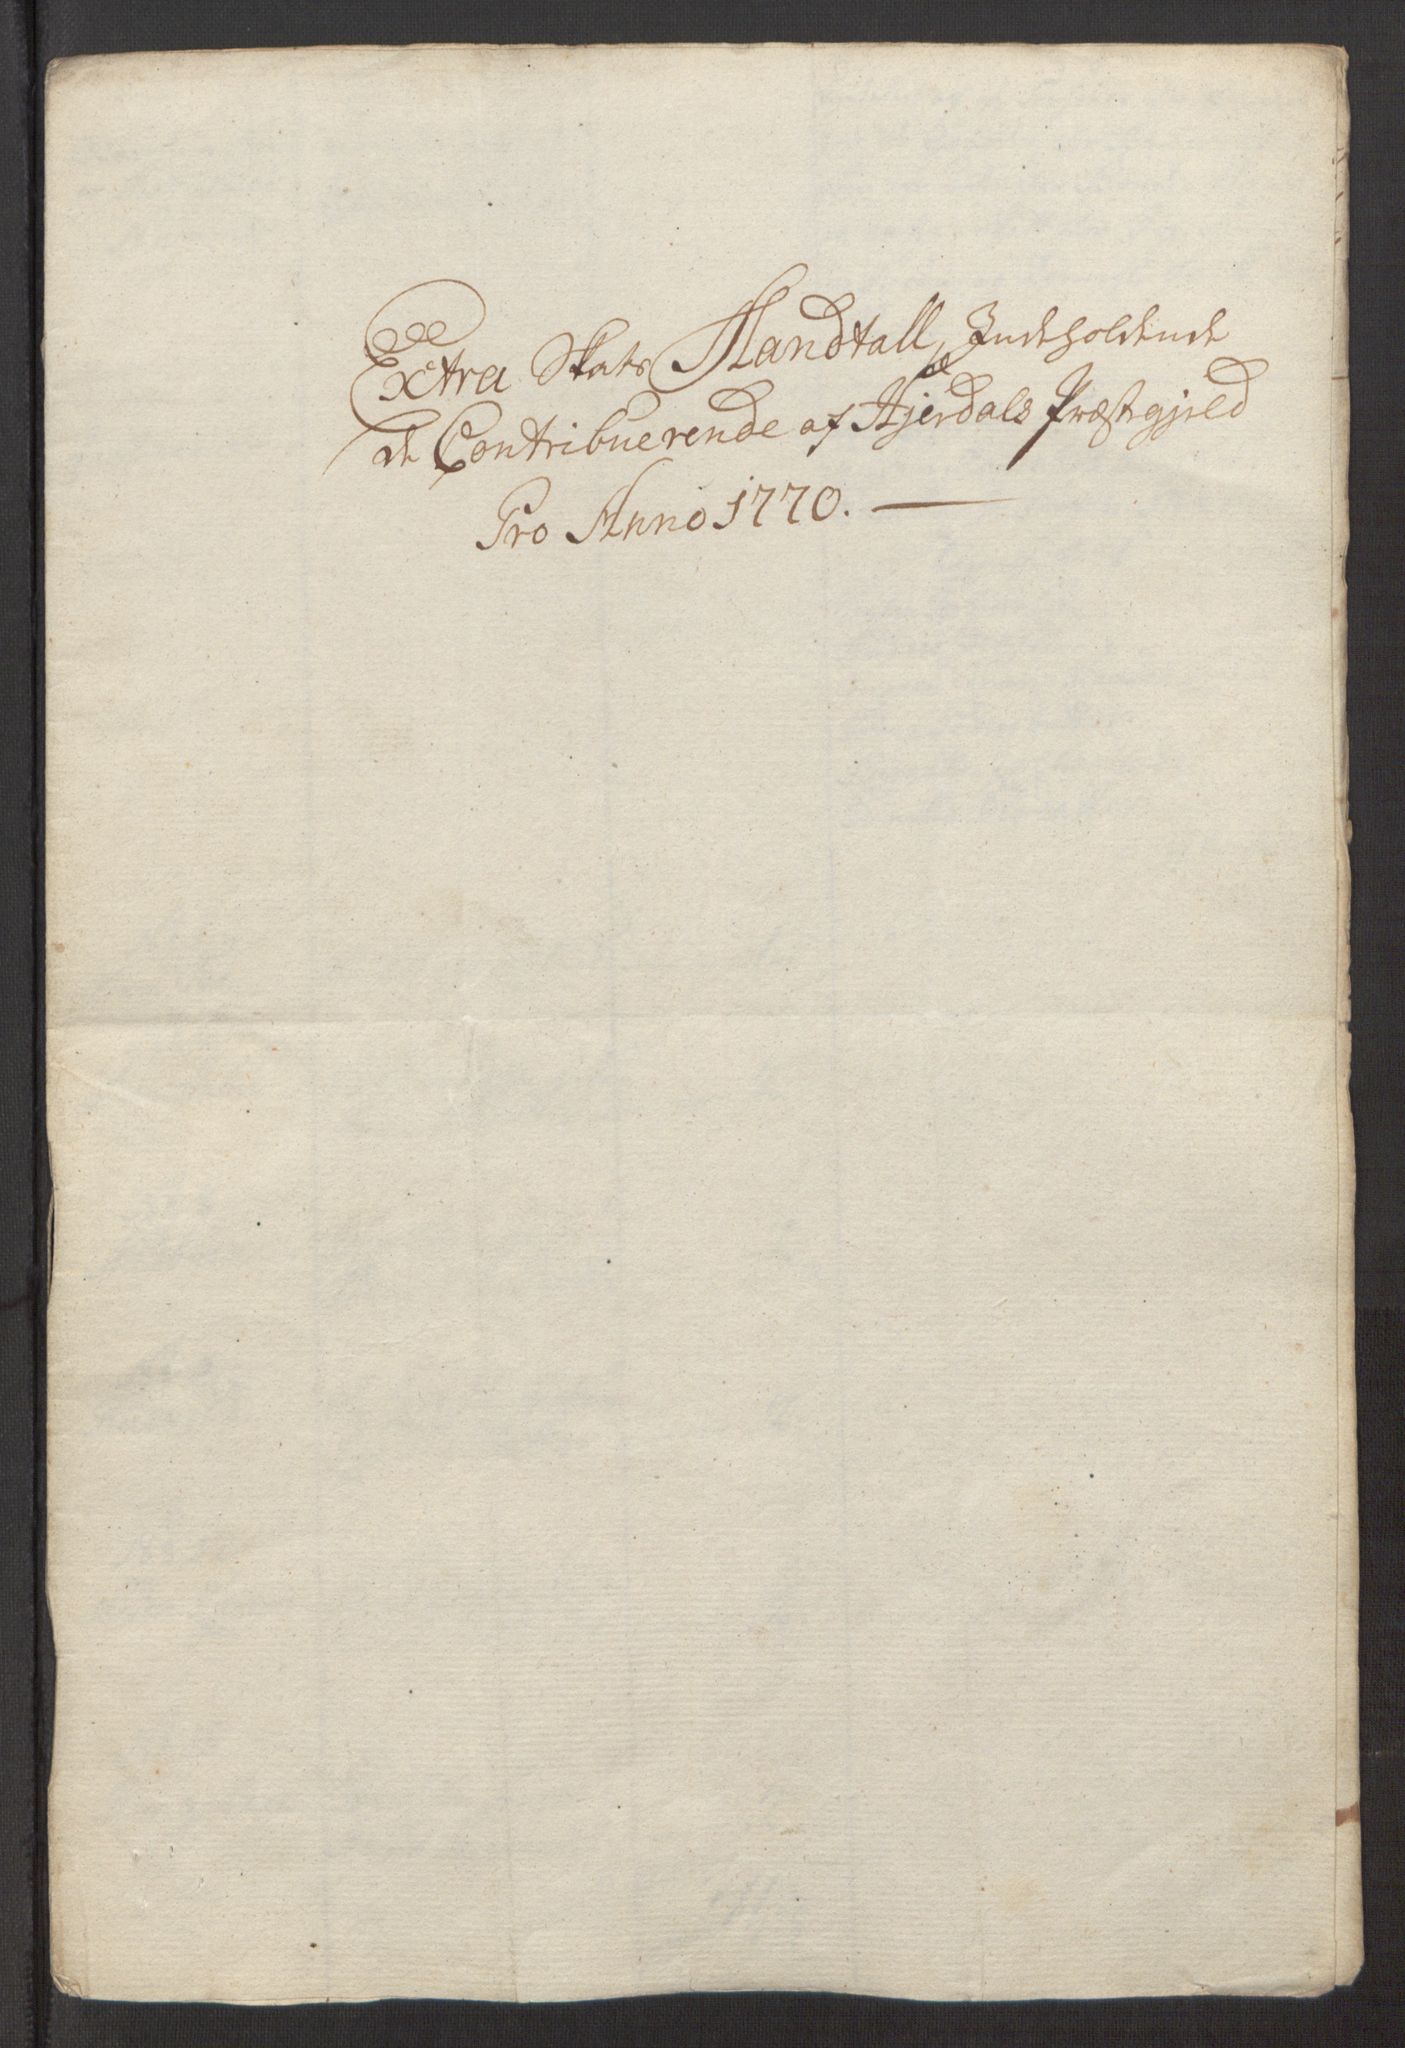 Extra Skats Mandtall, Indeholdende
de Contribuerende af Hjerdals Præstegjeld
Pro Anno 1770.